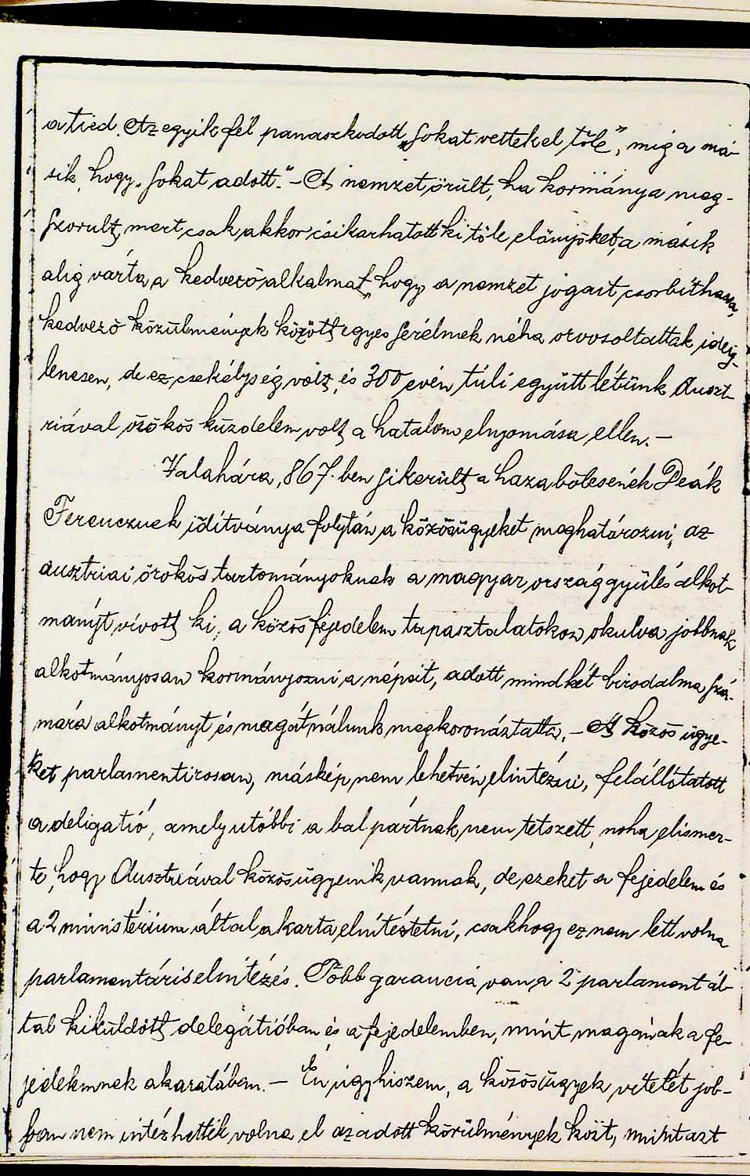 a tied. Az egyik fél panaszkodott „sokat vettek el tőle", míg a má-
sik, hogy „sokat adott." – A nemzet örült, ha kormánya meg-
szorult, mert csak akkor csikarhatott ki tőle előnyöket, a másik
alig várta a kedvező alkalmat, hogy a nemzet jogait csorbíthassa,
kedvező közülmények között egyes sérelmek néha orvosoltattak ideig-
lenesen, de ez csekélység volt, és 300 éven túli együttlétünk Auszt-
riával örökös küzdelem volt a hatalom elnyomása ellen. –
Valahára, 867-ben sikerült a haza bölcsének Deák
Ferencznek iditványa folytán a közösügyeket meghatározni, az
ausztriai örökös tartományoknak a magyar országgyűlés alkot-
mányt vívott ki, a közös fejedelem tapasztalatokon okulva jobbnak
alkotmányosan kormányozni a népeit, adott mindkét birodalma szá-
mára alkotmányt és magát nálunk megkoronáztatta. – A közös ügye-
ket parlamentirosan, máskép nem lehetvén elintézni, felállítatott
a deligatió, amely utóbbi a bal pártnak nem tetszett, noha elismer-
te, hogy Ausztriával közös ügyeink vannak, de ezeket a fejedelem és
a 2 ministérium által akarta elintéztetni, csakhogy ez nem lett volna
parlamentáris elintézés. Több garancia van a 2 parlament ál-
tal kiküldött delegátióban és a fejedelemben, mint magának a fe-
jedelemnek akaratában. – Én úgy hiszem, a közös ügyek vitelét job-
ban nem intézhették volna el az adott körülmények közt, mint azt